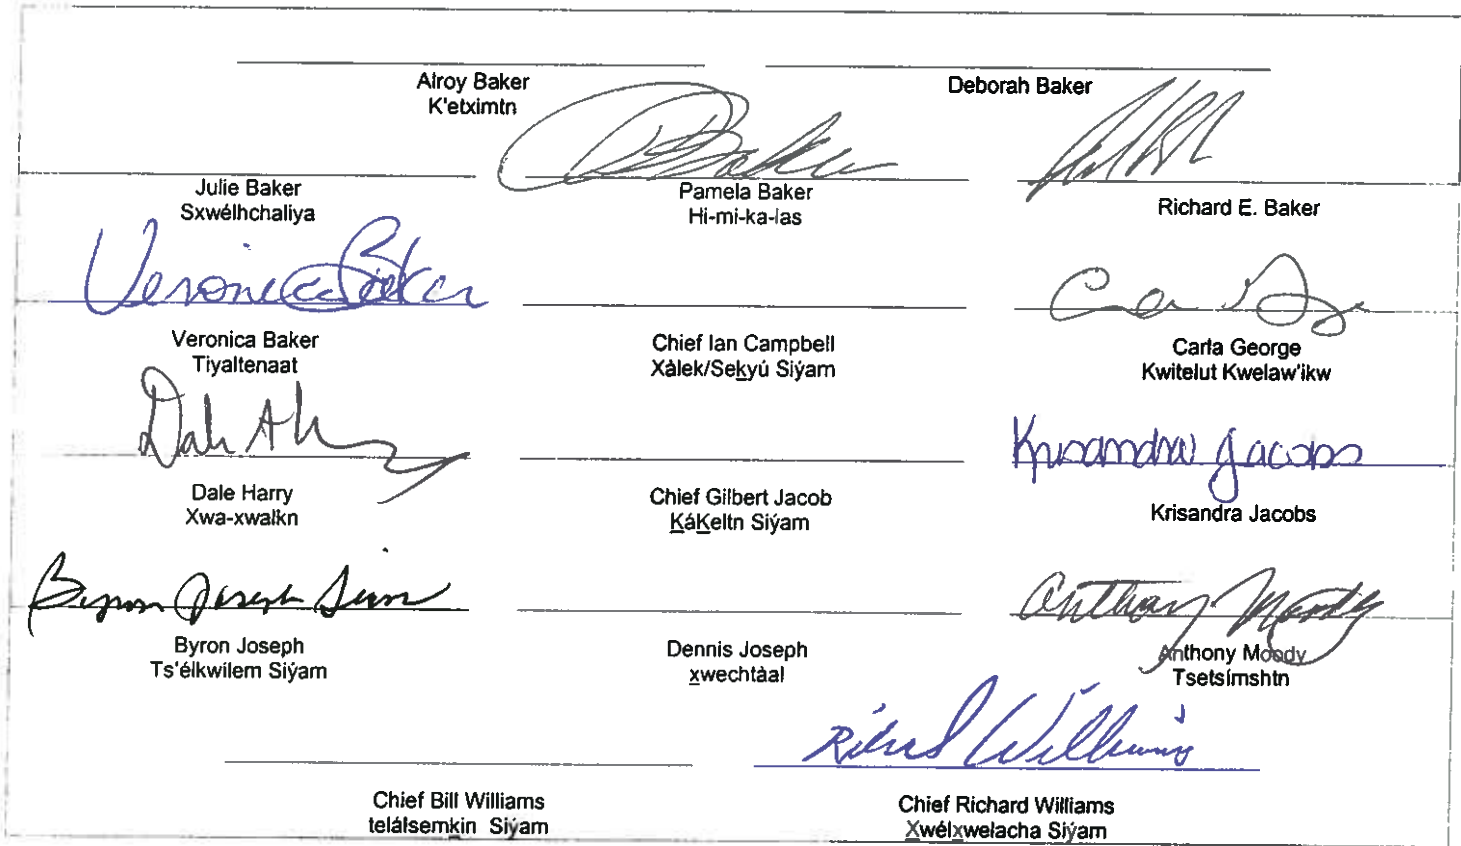 Alroy Baker
K'etximtn
Deborah Baker
Julie Baker
Sxwélhchaliya
Pamela Baker
Hi-mi-ka-las
Richard E. Baker
Veronica Baker
Veronica Baker
Tiyaltenaat
Chief Ian Campbell
Xàlek/Sekyú Siýam
Carla George
Kwitelut Kwelaw'ikw
Dale Harry
Xwa-xwalkn
Chief Gilbert Jacob
KáKeltn Siýam
Krisandra Jacobs
Krisandra Jacobs
Byron Joseph
Byron Joseph
Ts'élkwilem Siýam
Dennis Joseph
xwechtàal
Anthony Moody
Anthony Moody
Tsetsímshtn
Richard Williams
Chief Bill Williams
telálsemkin Siýam
Chief Richard Williams
Xwélxwelacha Siýam